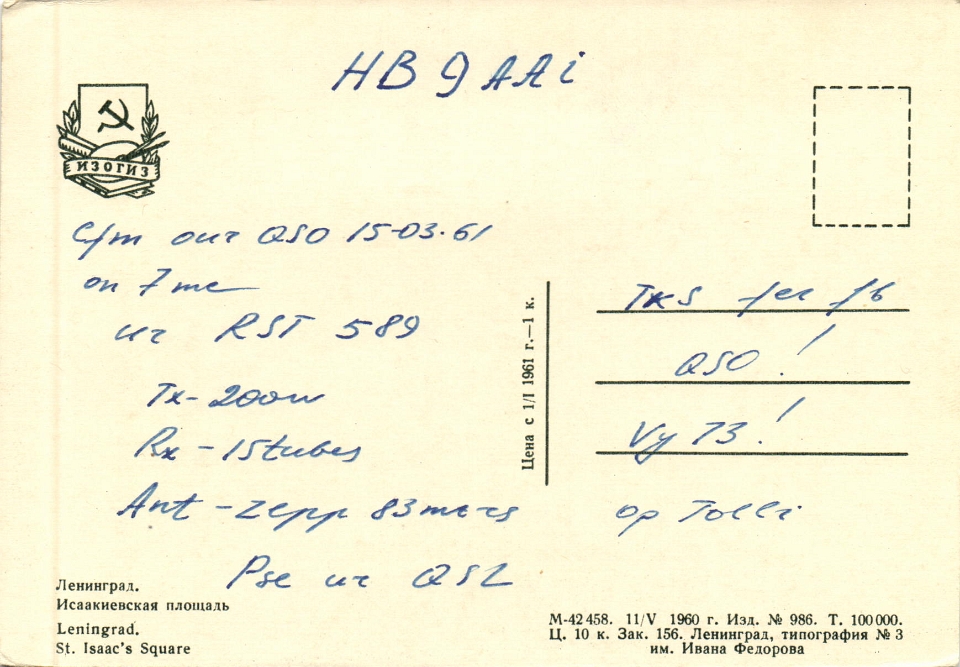 HB9AAi
ИЗОГИЗ
Cfm our QSO 15-03-61
on 7 mc
ur RST 589
Tx - 200w
Rx - 15 tubes
Ant - zepp 83 mtrs
Pse ur QSL
Ленинград.
Исаакиевская площадь
Leningrad.
St. Isaac's Square
Цена с 1/I 1961 г.—1 к.
Tks fer fb
QSO!
Vy 73!
op Tolli
М-42458. 11/V 1960 г. Изд. № 986. Т. 100000.
Ц. 10 к. Зак. 156. Ленинград, типография № 3
им. Ивана Федорова